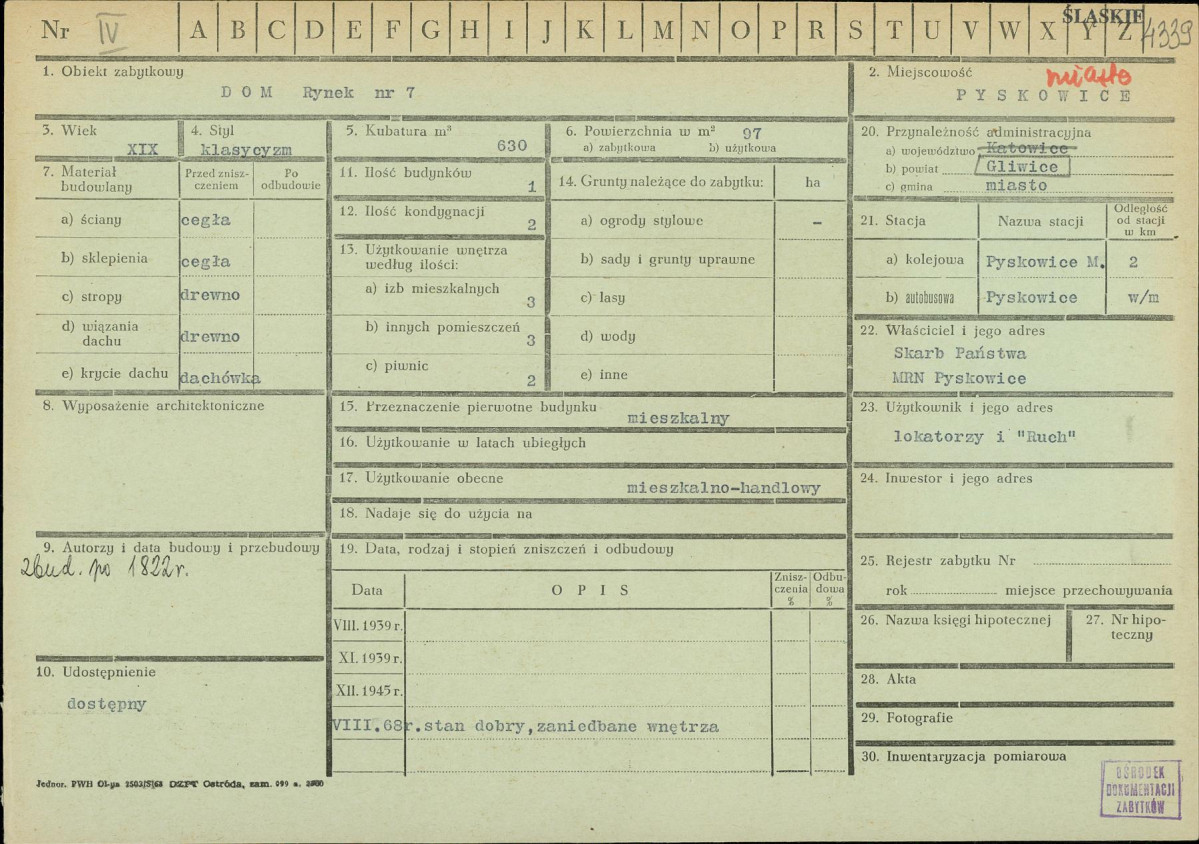 Nr IV A B C D E F G H I J K L M N O P R S T U V W X Y Z ŚLĄSKIE 4339
1. Obiekt zabytkowy
DOM Rynek nr 7
2. Miejscowość miasto
PYSKOWICE
3. Wiek
XIX
4. Styl
klasycyzm
5. Kubatura m³
630
6. Powierzchnia w m² 97
a) zabytkowa b) użytkowa
7. Materiał budowlany
Przed zniszczeniem
Po odbudowie
a) ściany cegła
b) sklepienia cegła
c) stropy drewno
d) wiązania dachu drewno
e) krycie dachu dachówka
8. Wyposażenie architektoniczne
9. Autorzy i data budowy i przebudowy
zbud. po 1822 r.
10. Udostępnienie
dostępny
11. Ilość budynków
1
12. Ilość kondygnacji
2
13. Użytkowanie wnętrza
według ilości:
a) izb mieszkalnych
3
b) innych pomieszczeń
3
c) piwnic
2
14. Grunty należące do zabytku: ha
a) ogrody stylowe –
b) sady i grunty uprawne
c) lasy
d) wody
e) inne
15. Przeznaczenie pierwotne budynku
mieszkalny
16. Użytkowanie w latach ubiegłych
17. Użytkowanie obecne
mieszkalno-handlowy
18. Nadaje się do użycia na
19. Data, rodzaj i stopień zniszczeń i odbudowy
Data OPIS Zniszczenia % Odbudowa %
VIII. 1939 r.
XI. 1939 r.
XII. 1945 r.
VIII.68r. stan dobry, zaniedbane wnętrza
20. Przynależność administracyjna
a) województwo Katowice
b) powiat Gliwice
c) gmina miasto
21. Stacja Nazwa stacji Odległość od stacji w km
a) kolejowa Pyskowice M. 2
b) autobusowa Pyskowice w/m
22. Właściciel i jego adres
Skarb Państwa
MRN Pyskowice
23. Użytkownik i jego adres
lokatorzy i "Ruch"
24. Inwestor i jego adres
25. Rejestr zabytku Nr
rok miejsce przechowywania
26. Nazwa księgi hipotecznej
27. Nr hipoteczny
28. Akta
29. Fotografie
30. Inwentaryzacja pomiarowa
OŚRODEK
DOKUMENTACJI
ZABYTKÓW
Jednor. PWH Ol-yn DZPT Ostróda, zam. 099 n.